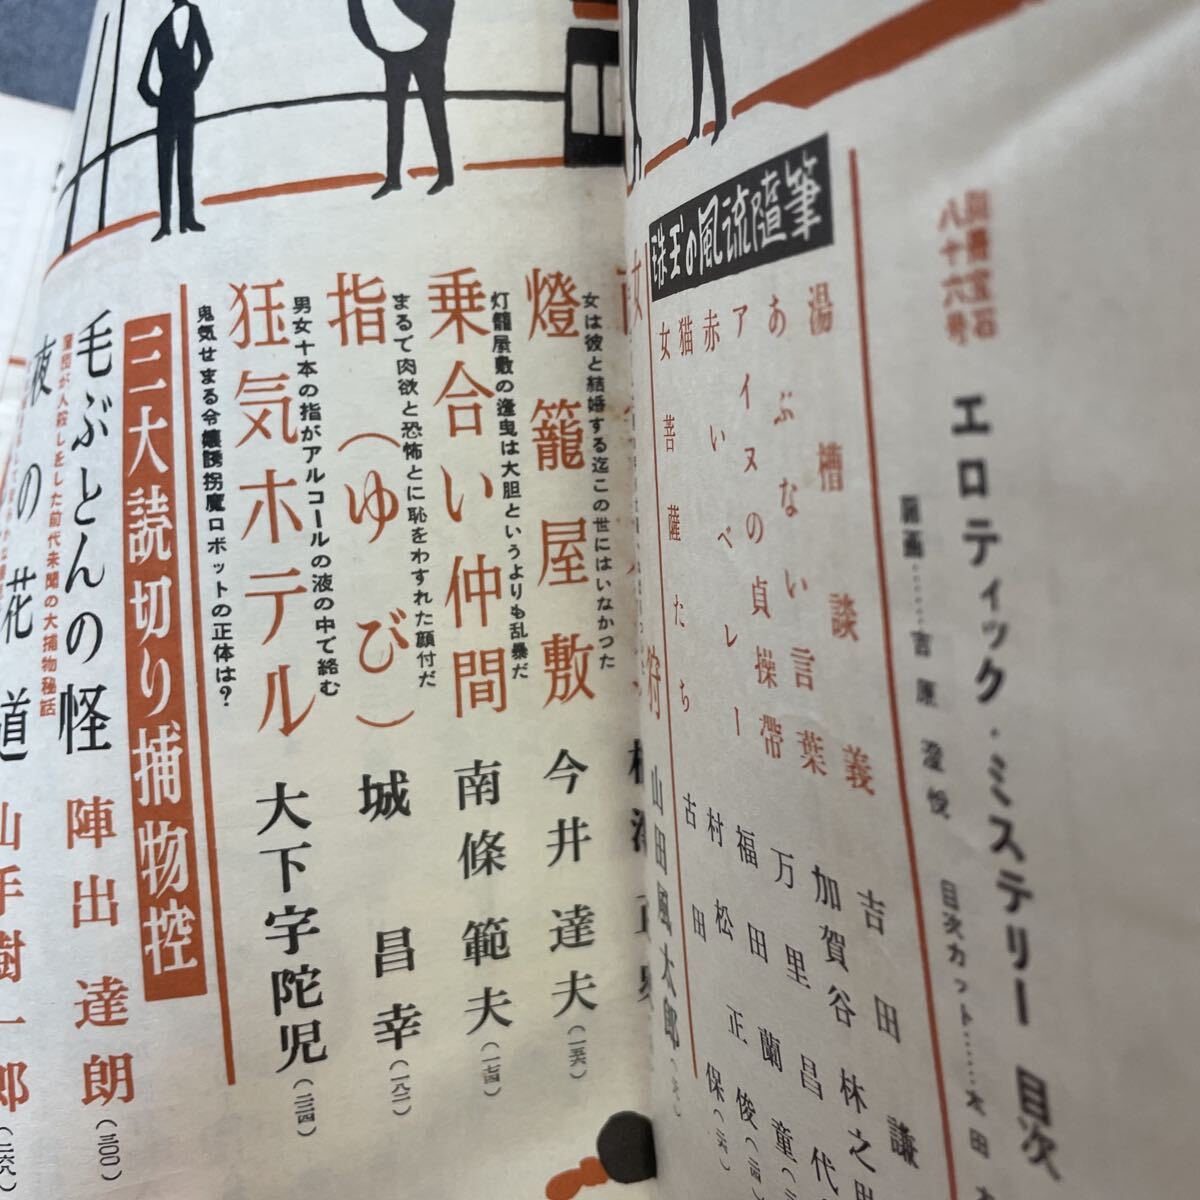 別冊宝石
八十六号
エロティック・ミステリー 目次
目次カット……
珠玉の風流随筆
湯槽談義 吉田謙
あぶない言葉 加賀谷林之
アイヌの貞操帯 万里昌代
赤いベレー 福田蘭童
猫 村松正俊
女菩薩たち 古田保
狩 山田風太郎
女は彼と結婚する迄この世にはいなかつた
燈籠屋敷 今井達夫(一五六)
灯籠屋敷の逢曳は大胆というよりも乱暴だ
乗合い仲間 南條範夫(一七四)
まるで肉欲と恐怖とに恥をわすれた顔付だ
指(ゆび) 城昌幸(一八二)
男女十本の指がアルコールの液の中で絡む
狂気ホテル 大下宇陀児(二二四)
鬼気せまる令嬢誘拐魔ロボットの正体は?
三大読切り捕物控
毛ぶとんの怪 陣出達朗(三〇〇)
蒲団が人殺しをした前代未聞の大捕物秘話
夜の花道 山手樹一郎